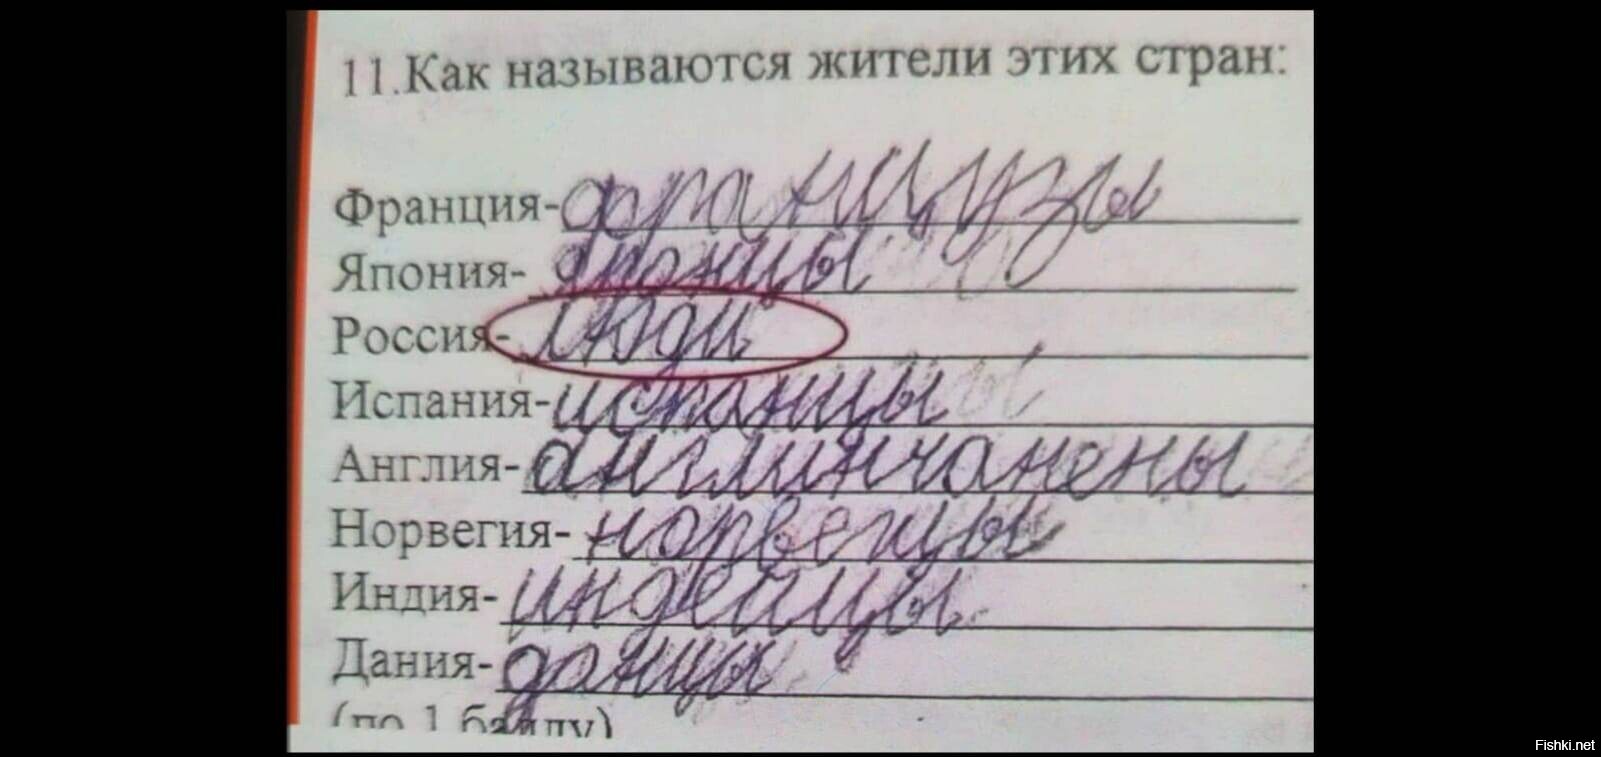 11.Как называются жители этих стран:
Франция- французы
Япония- японцы
Россия- люди
Испания- испанцы
Англия- англинчанены
Норвегия- норвегцы
Индия- индейцы
Дания- данцы
(по 1 баллу)
Fishki.net